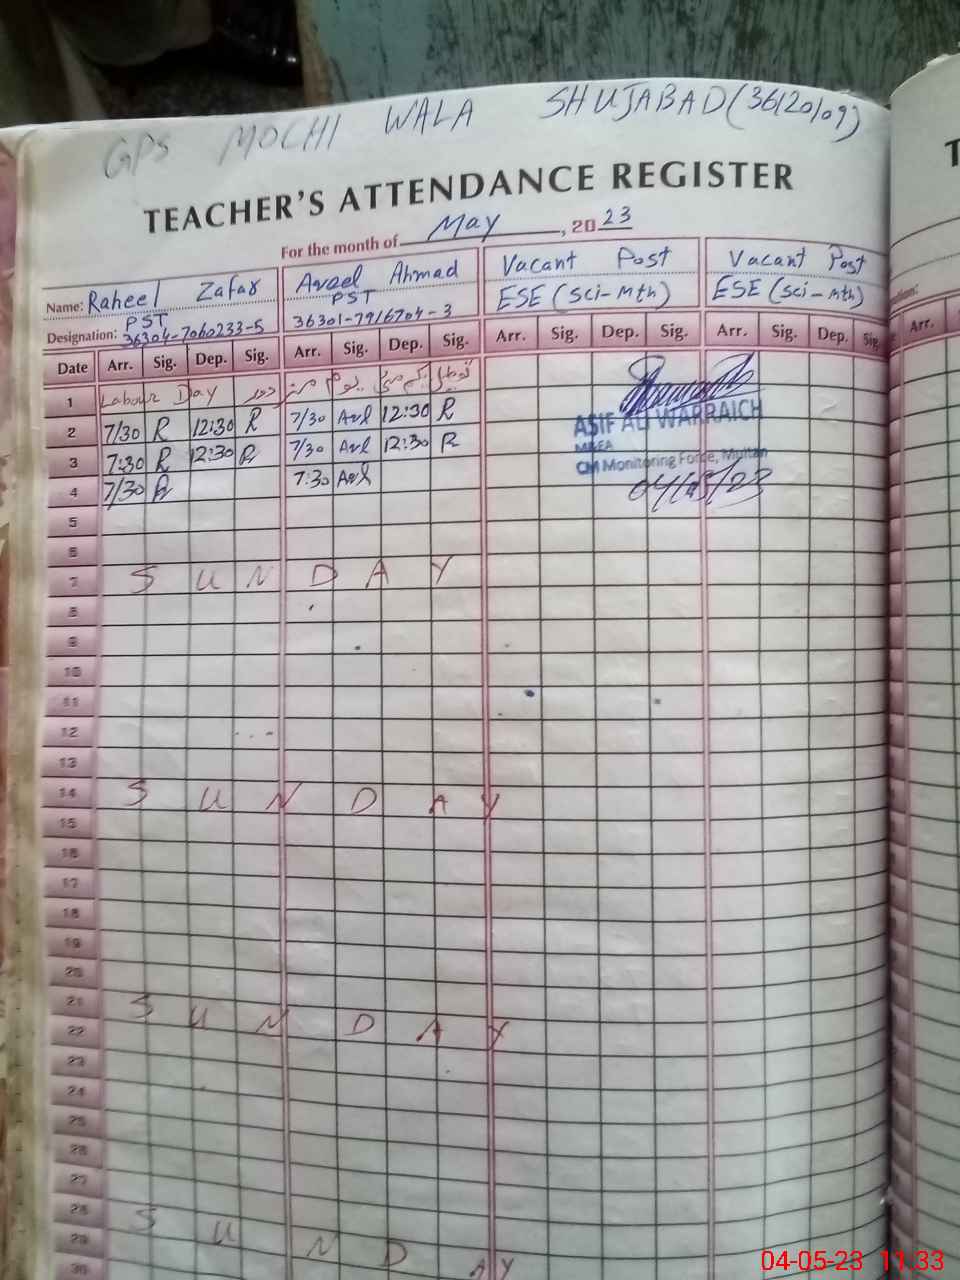 GPS MOCHI WALA SHUJABAD (36120109)
TEACHER'S ATTENDANCE REGISTER
For the month of May, 2023
Name: Raheel Zafar Aveel Ahmad Vacant Post Vacant Post
Designation: PST PST ESE (Sci-Mth) ESE (Sci-Mth)
36304-7060233-5 36301-7916704-3
Date Arr. Sig. Dep. Sig. Arr. Sig. Dep. Sig. Arr. Sig. Dep. Sig. Arr. Sig. Dep. Sig. Arr.
1 Labour Day
2 7/30 R 12:30 R 7/30 Avl 12:30 R
3 7:30 R 12:30 R 7/30 Avl 12:30 R
4 7/30 R 7:30 Avl
ASIF ALI WARRAICH
MEA
CM Monitoring Force, Multan
04/05/23
5
6
7 SUNDAY
8
9
10
11
12
13
14 SUNDAY
15
16
17
18
19
20
21 SUNDAY
22
23
24
25
26
27
28 SUNDAY
29
30
04-05-23 11:33